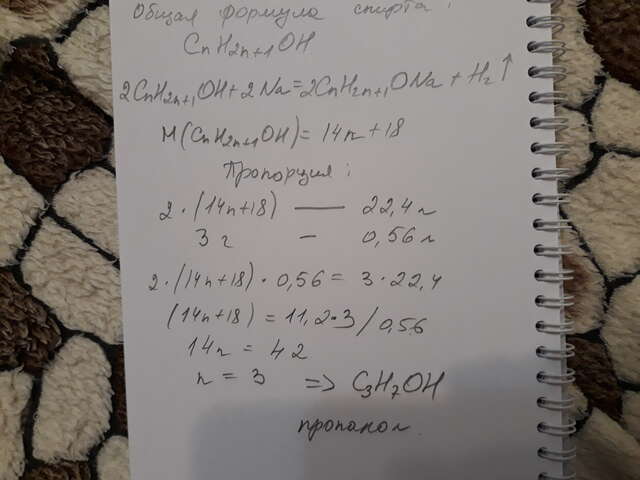 Общая формула спирта:
CnH2n+1OH
2CnH2n+1OH + 2Na = 2CnH2n+1ONa + H2↑
M(CnH2n+1OH) = 14n + 18
Пропорция:
2·(14n+18) — 22,4л
3г — 0,56л
2·(14n+18)·0,56 = 3·22,4
(14n+18) = 11,2·3/0,56
14n = 42
n = 3 => C3H7OH
пропанол.